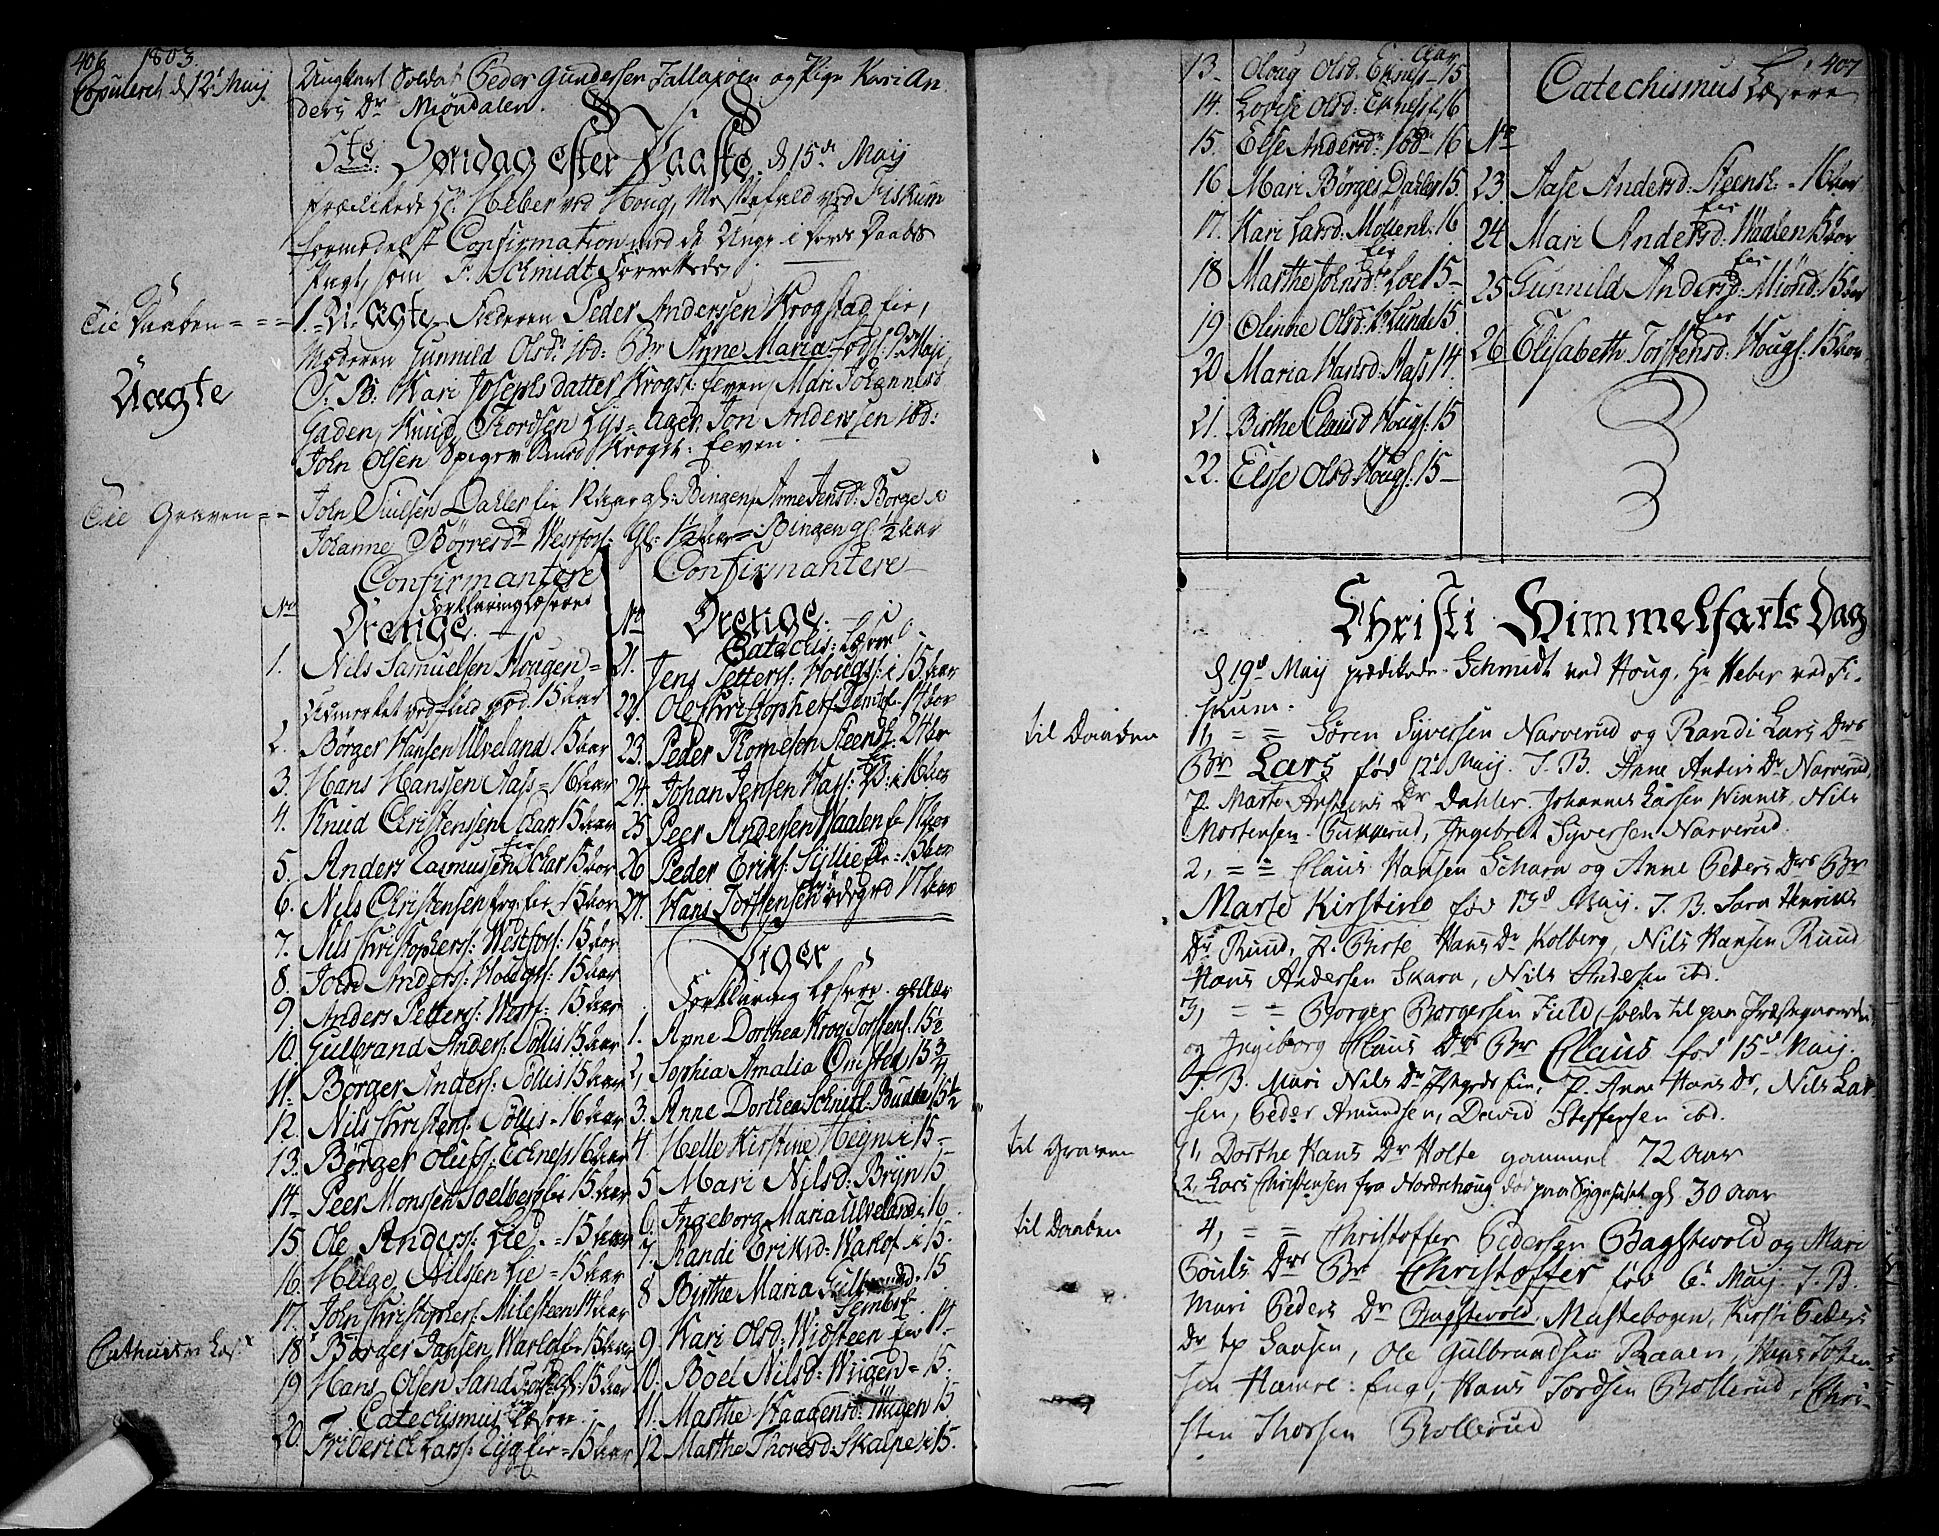 406 1803.
Copuleret d 12t Maij
Ungkarl Soldat Peder Gundersen Jallasøen og Pige Kari An
ders Dr Miøndalen.
5te Søndag efter Paaske d 15de Maij
prædikede Hr. Heber ved Houg, Messefald ved Fiskum
formedelst Confirmation med de Unge i deres Daabes
Pagt, som F. Schmidt forrettede
Til Daaben = = =
1. Uægte Faderen Peder Andersen Krogstad eie,
Moderen Gunnild Olsdr ibd: Br Anne Maria fød 9de Maji
Uægte
T. B. Kari Josephsdatter Krogst: eeven, Mari Johannesd
Gaden, Knud Thordsen Lys= ager, Jon Andersen ibd:
John Olsen Krogst: eeven.
Til Graven = =
John Truelsen Dahler eie gl: Bingen, Anne Jensd: Borge
Johanne Børresdr Westfos: Gl: 1½ aar = Bingen gl. ½ aar
Confirmantere
Forklaring læsere
No Drenge.
1. Nils Samuelsen Hougen =
15 aar
2. Børger Hansen Ulveland 15 aar
3. Hans Hanssen Aass = 16 aar
4. Knud Christensen Skar 15 aar
5. Anders Rasmussen Skar 15 aar
6. Nils Christensen eie 15 aar
7. Nils Christophers: Westfos: 15 aar
8. John Anders: Hougs: 15 aar
9. Anders Petters: Westf: 15 aar
10. Gulbrand Anders: Sollis 15 aar
11. Børger Anders: Sollis 15 aar
12. Nils Christens: Sollis = 16 aar
13. Børger Olufs: Echnes 16 aar
14. Peer Monsen Soelberg eie 15 aar
15. Ole Anders: Lie = 15 aar
16. Helge Nilssen Lie = 15 aar
17. John Christophers: Milesteen 14 aar
18. Børger Jansen Warlo eie 15 aar
19. Hans Olsen Sand 15 aar
Catechismus Læsere
20. Friderich Lars: eie = 15 aar
Confirmantere
No Drenge.
Catechis: læsere
21. Jens Petters: Hougs: 15 aar
22. Ole Christophers 17 aar
23. Peder Thomesen Steens: 24 aar
24. Johan Jensen Hars: 16 aar
25. Peer Andersen Waalen eie 17 aar
26. Peder Eriks: Syllie eie: 15 aar
27. Hans Torstensen 17 aar
Piger
Forklaring Læsere gl. Aar
1. Anne Dorthea Krog Torstens. 15½
2. Sophia Amalia Omsted 15¾
3. Anne Dorthea Schmit: Budda 15½
4. Helle Kirstine Hegnei 15 =
5. Mari Nilsd: Bryn 15
6. Ingeborg Maria Ulveland 16
7. Randi Eriksd: Hakof 15.
8. Byrthe Maria Gulbrandsd. 15
Sembsf.
9. Kari Olsd: Widsteen eie 14
10. Boel Nilsd: Wiigen = 15.
11. Marthe Haagensd: Wiigen 15
12. Marthe Thoresd: Skalpe 15.
407
Aar
13. Oloug Olsd. Eknes 15
14. Lovise Olsd: Eknes 16
15. Else Andersdr ibd = 16
16. Mari Børges Dahler 15
17. Kari Larsd: Møllenh: 16
18. Marthe Johnsdr Loe 15 =
19. Olinne Olsd: Lunde 15.
20. Maria Hansd: Hass 14.
21. Birthe Clausd Hougs: 15
22. Else Olsd: Hougs: 15 =
Catechismus Læsere
No
23. Aase Andersd: Steens: = 16 aar
24. Mari Andersd: Waalen 15 aar
25. Gunnild Andersd: Miønd: 15 aar
26. Elisabeth Torstensd: Hougs: 15 aar
Christi Himmelfarts Dag
d 19d Maij prædikede Schmidt ved Houg, Hr Heber ved Fi-
skum.
til Daaben
1, = = Søren Syversen Narverud og Randi Lars Drs
Br Lars fød 12t Maij. T. B. Anne Anders Dr Narverud,
P. Marte Anders Dr Dahler. Johannes Larsen Winnes, Nils
Mortensen Gukkerud, Ingebret Syversen Narverud.
2, = = Claus Hansen Schara og Anne Peders Drs Br
Marte Kirstine fød 13d Maij. T. B. Sara Henriks
Dr Ruud, P. Birte Hans Dr Kolberg, Nils Hansen Ruud
Hans Andersen Skara, Nils Andersen ibd.
3, = = Børger Børgersen Field Soldat til paa Præstegaarden
og Ingeborg Claus Drs Br Claus fød 15d Maij.
T. B. Mari Nils Dr eie, P. Anne Hans Dr, Nils Lar
sen, Peder Amundsen, David Steffensen ibd.
til Graven
1, Dorthe Hans Dr Holte gammel 72 aar
2. Lars Christensen fra Nordrehoug død paa Sygehuset gl 30 aar
til Daaben
4, = = Christoffer Pedersen Bagstevold og Mari
Pouls Drs Br Christoffer fød 6t Maij. T. B.
Mari Peders Dr Bagstevold Mastebogen, Kirsti Peders
Dr Hansen, Ole Gulbrandsen Raaen, Hans Johan
sen Hamre: Eng, Hans Tordsen Bollerud, Chri-
sten Thorsen Bollerud